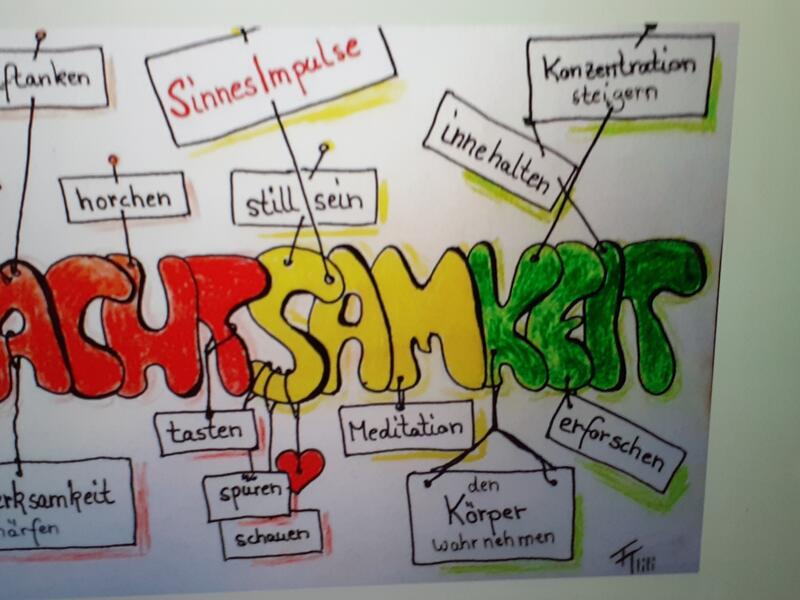 ftanken
SinnesImpulse
Konzentration
steigern
innehalten
horchen
still sein
ACHTSAMKEIT
tasten
Meditation
erforschen
spüren
schauen
erksamkeit
ärfen
den
Körper
wahrnehmen